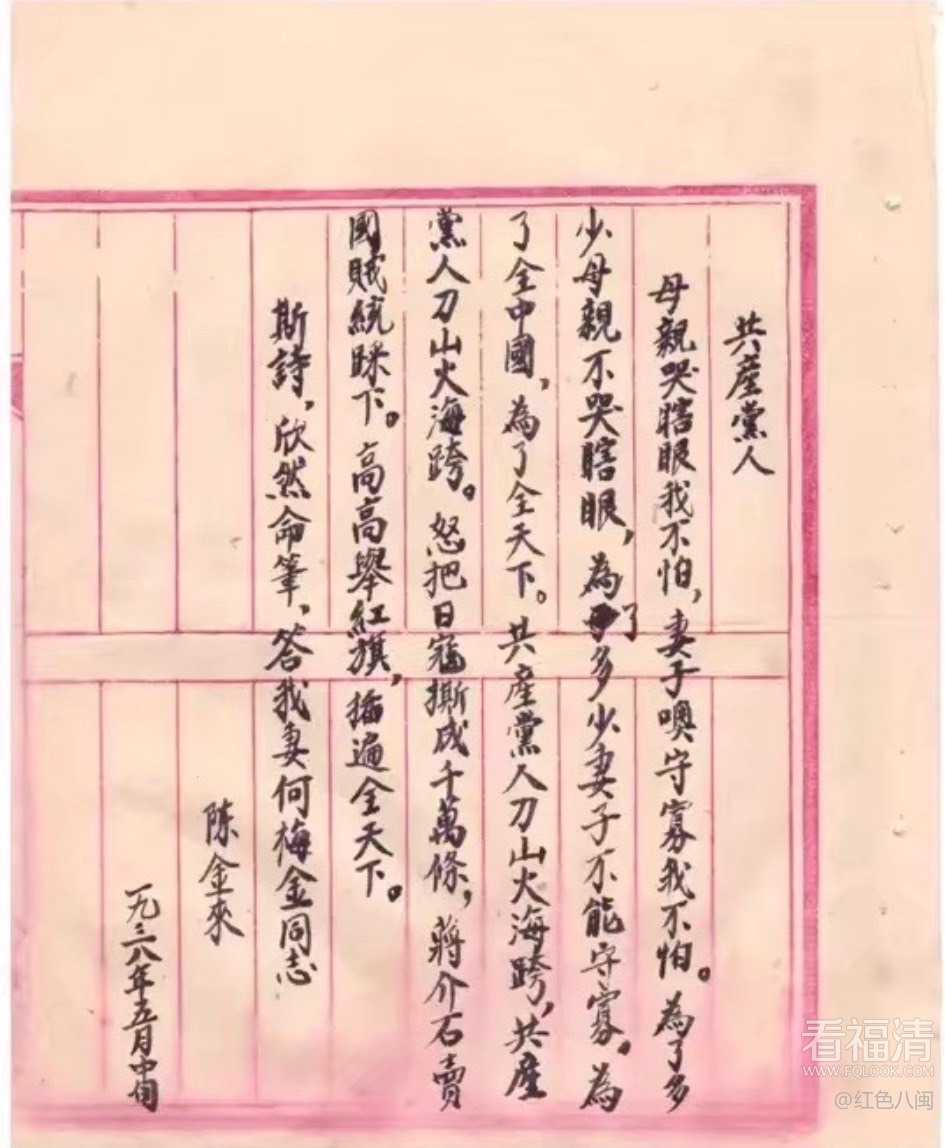 共產黨人
母親哭瞎眼我不怕，妻子噢守寡我不怕。為了多
少母親不哭瞎眼，為了多少妻子不能守寡。為
了全中國，為了全天下。共產黨人刀山火海跨，共產
黨人刀山火海跨。怒把日寇撕成千萬條，蔣介石賣
國賊統睬下。高高舉紅旗，插遍全天下。
斯詩，欣然命筆，答我妻何梅金同志
陈金來
一九三八年五月中旬
看福清
WWW.FQLOOK.COM
@红色八闽